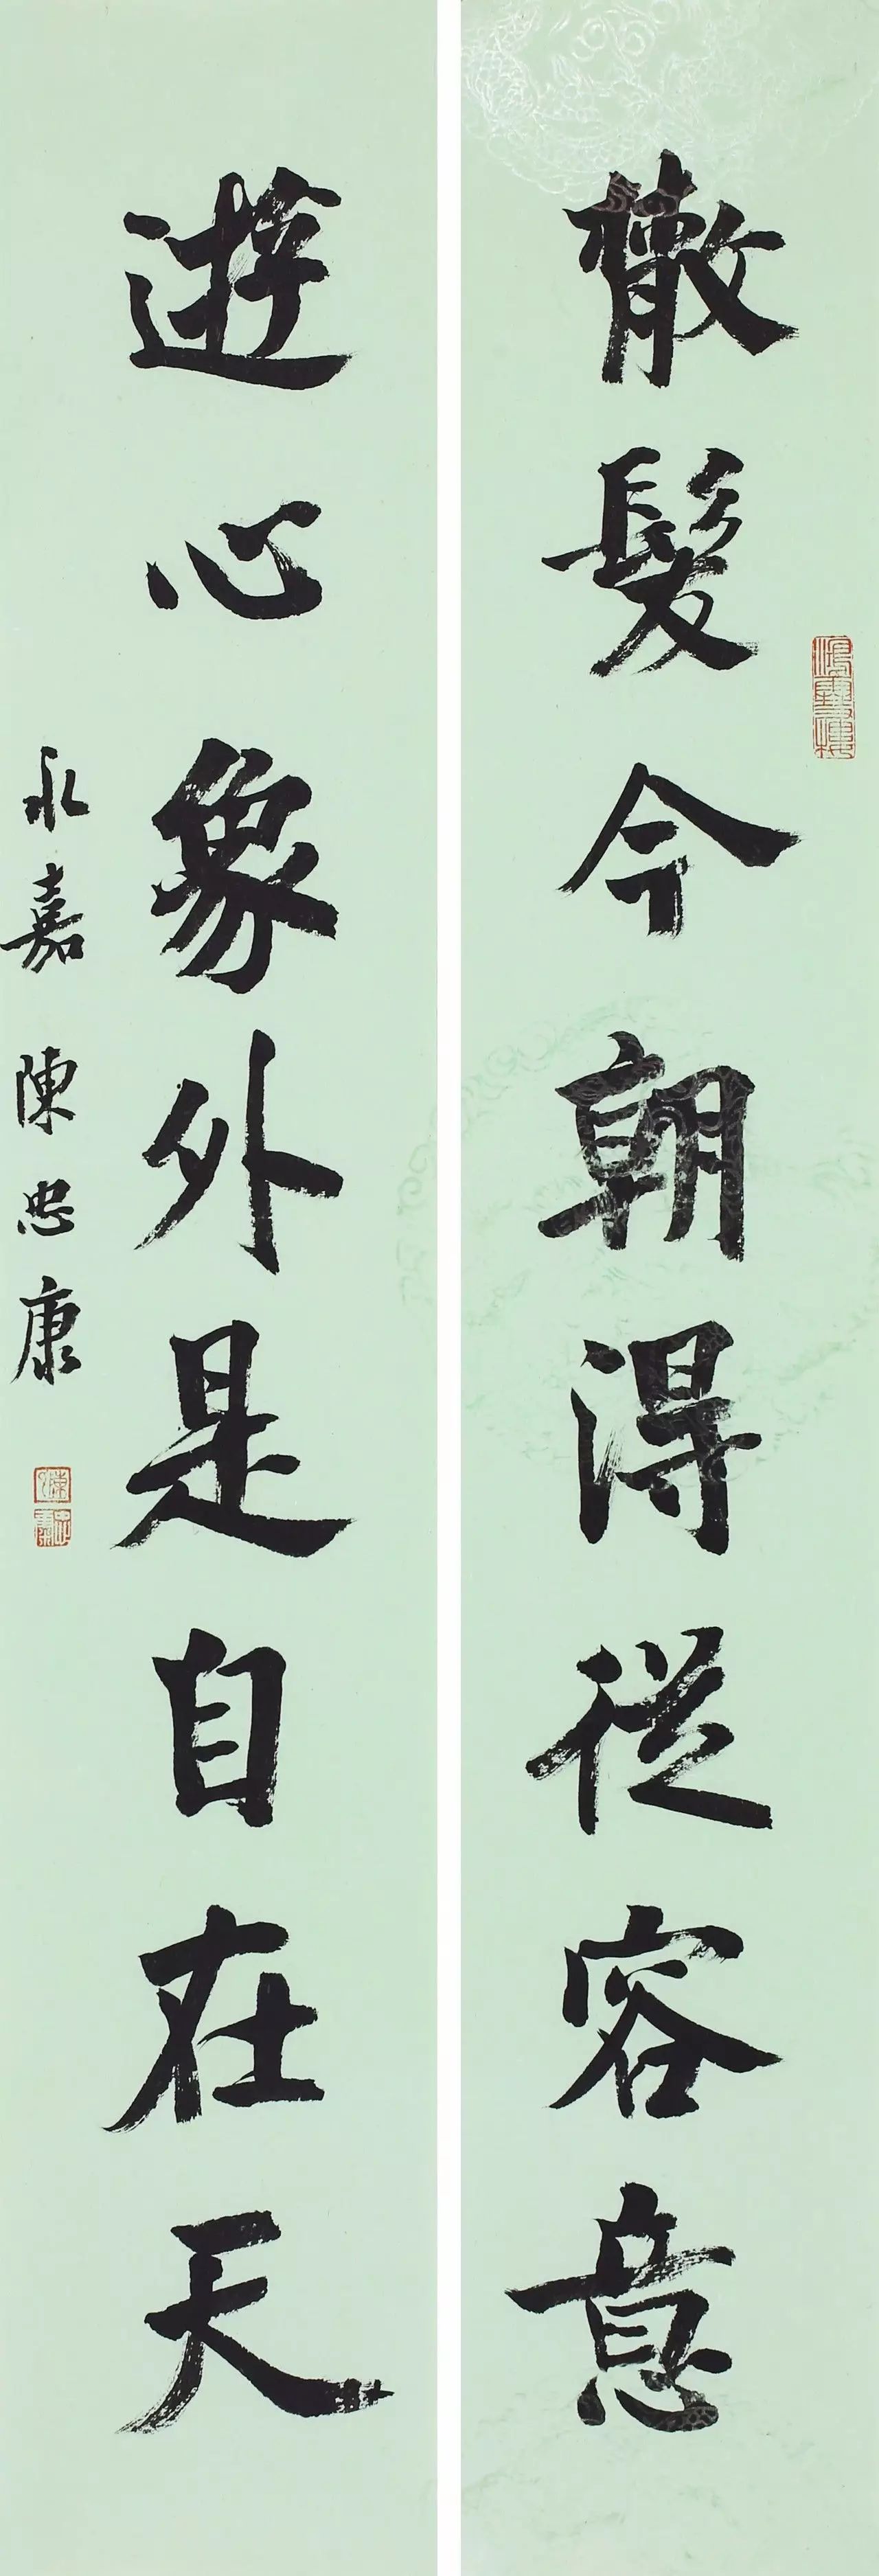 散髮今朝得從容意
遊心象外是自在天
永嘉陳忠康